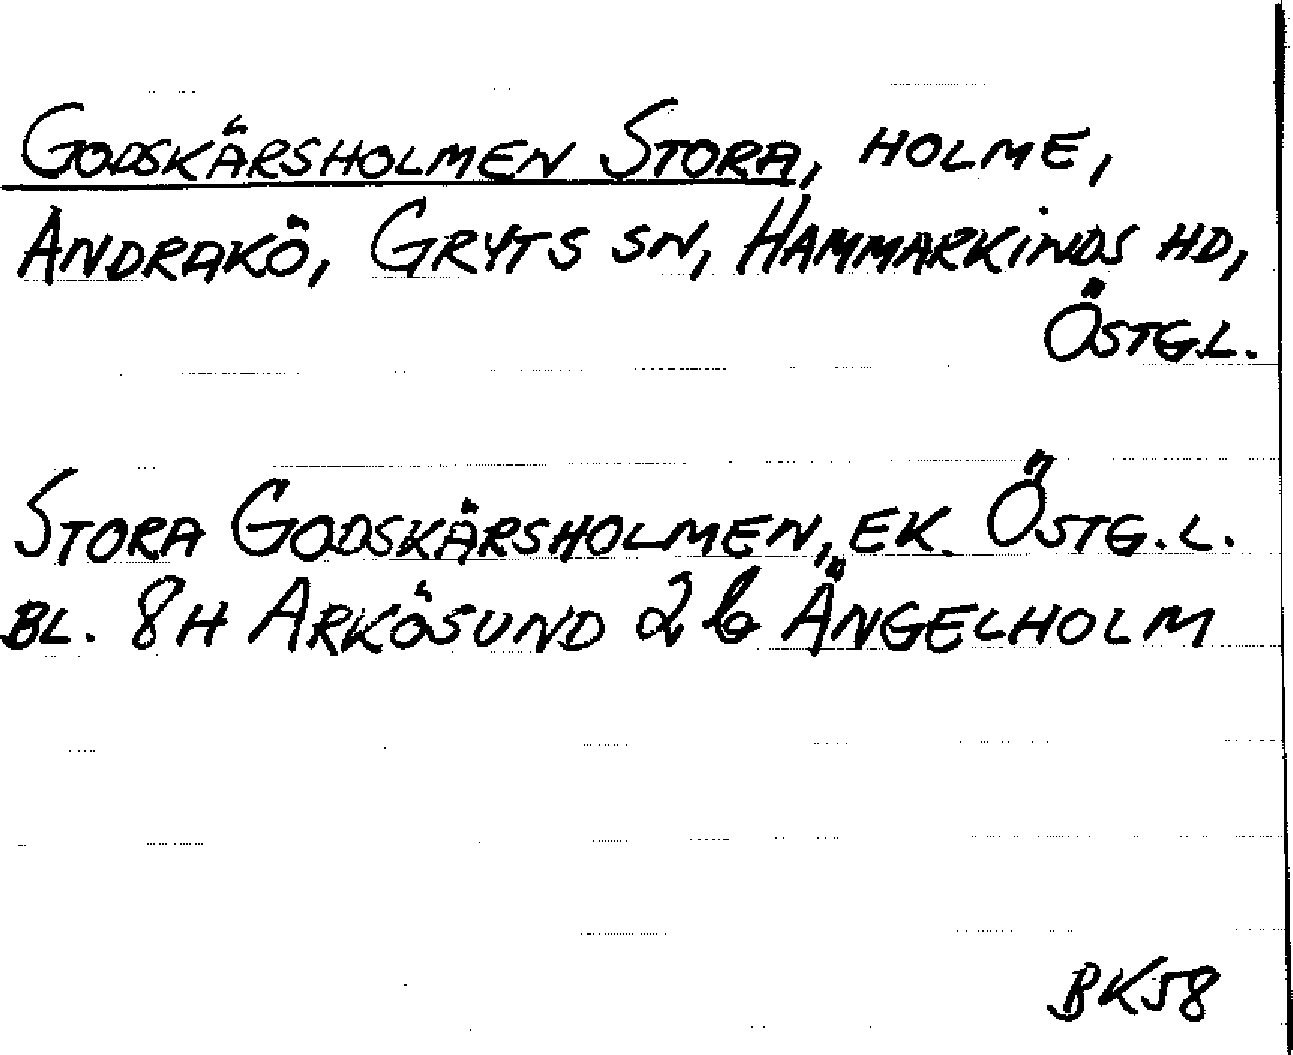 GODSKÄRSHOLMEN STORA, HOLME,
ANDRAKÖ, GRYTS SN, HAMMARKINDS HD,
ÖSTG.L.
STORA GODSKÄRSHOLMEN, EK. ÖSTG.L.
BL. 8H ARKÖSUND 2b ÄNGELHOLM
BK58